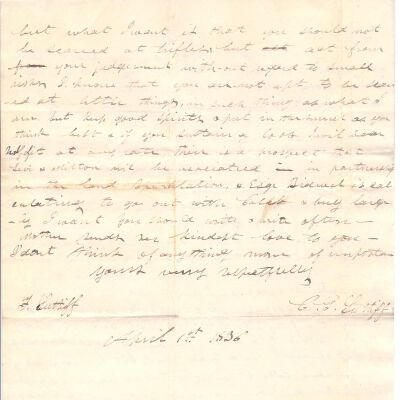 but what I want is that you should not
be scared at trifles but act from
your judgement without regard to small
risks I know that you are not apt to be scar
ed at little things, in such things as what I
am but keep good spirits & put in the
think best & if you sustain a loss I will
not at any rate there is a prospect that
& Milton will be associated in partnership
in the Land Speculation, & Esqr is cal
culating to go out with Caleb & buy large
ly I want you should write & write often
Mother sends her kindest love to you
I dont think of any thing more of importan
Yours very respectfully
F. Cutliff
April 1st 1836